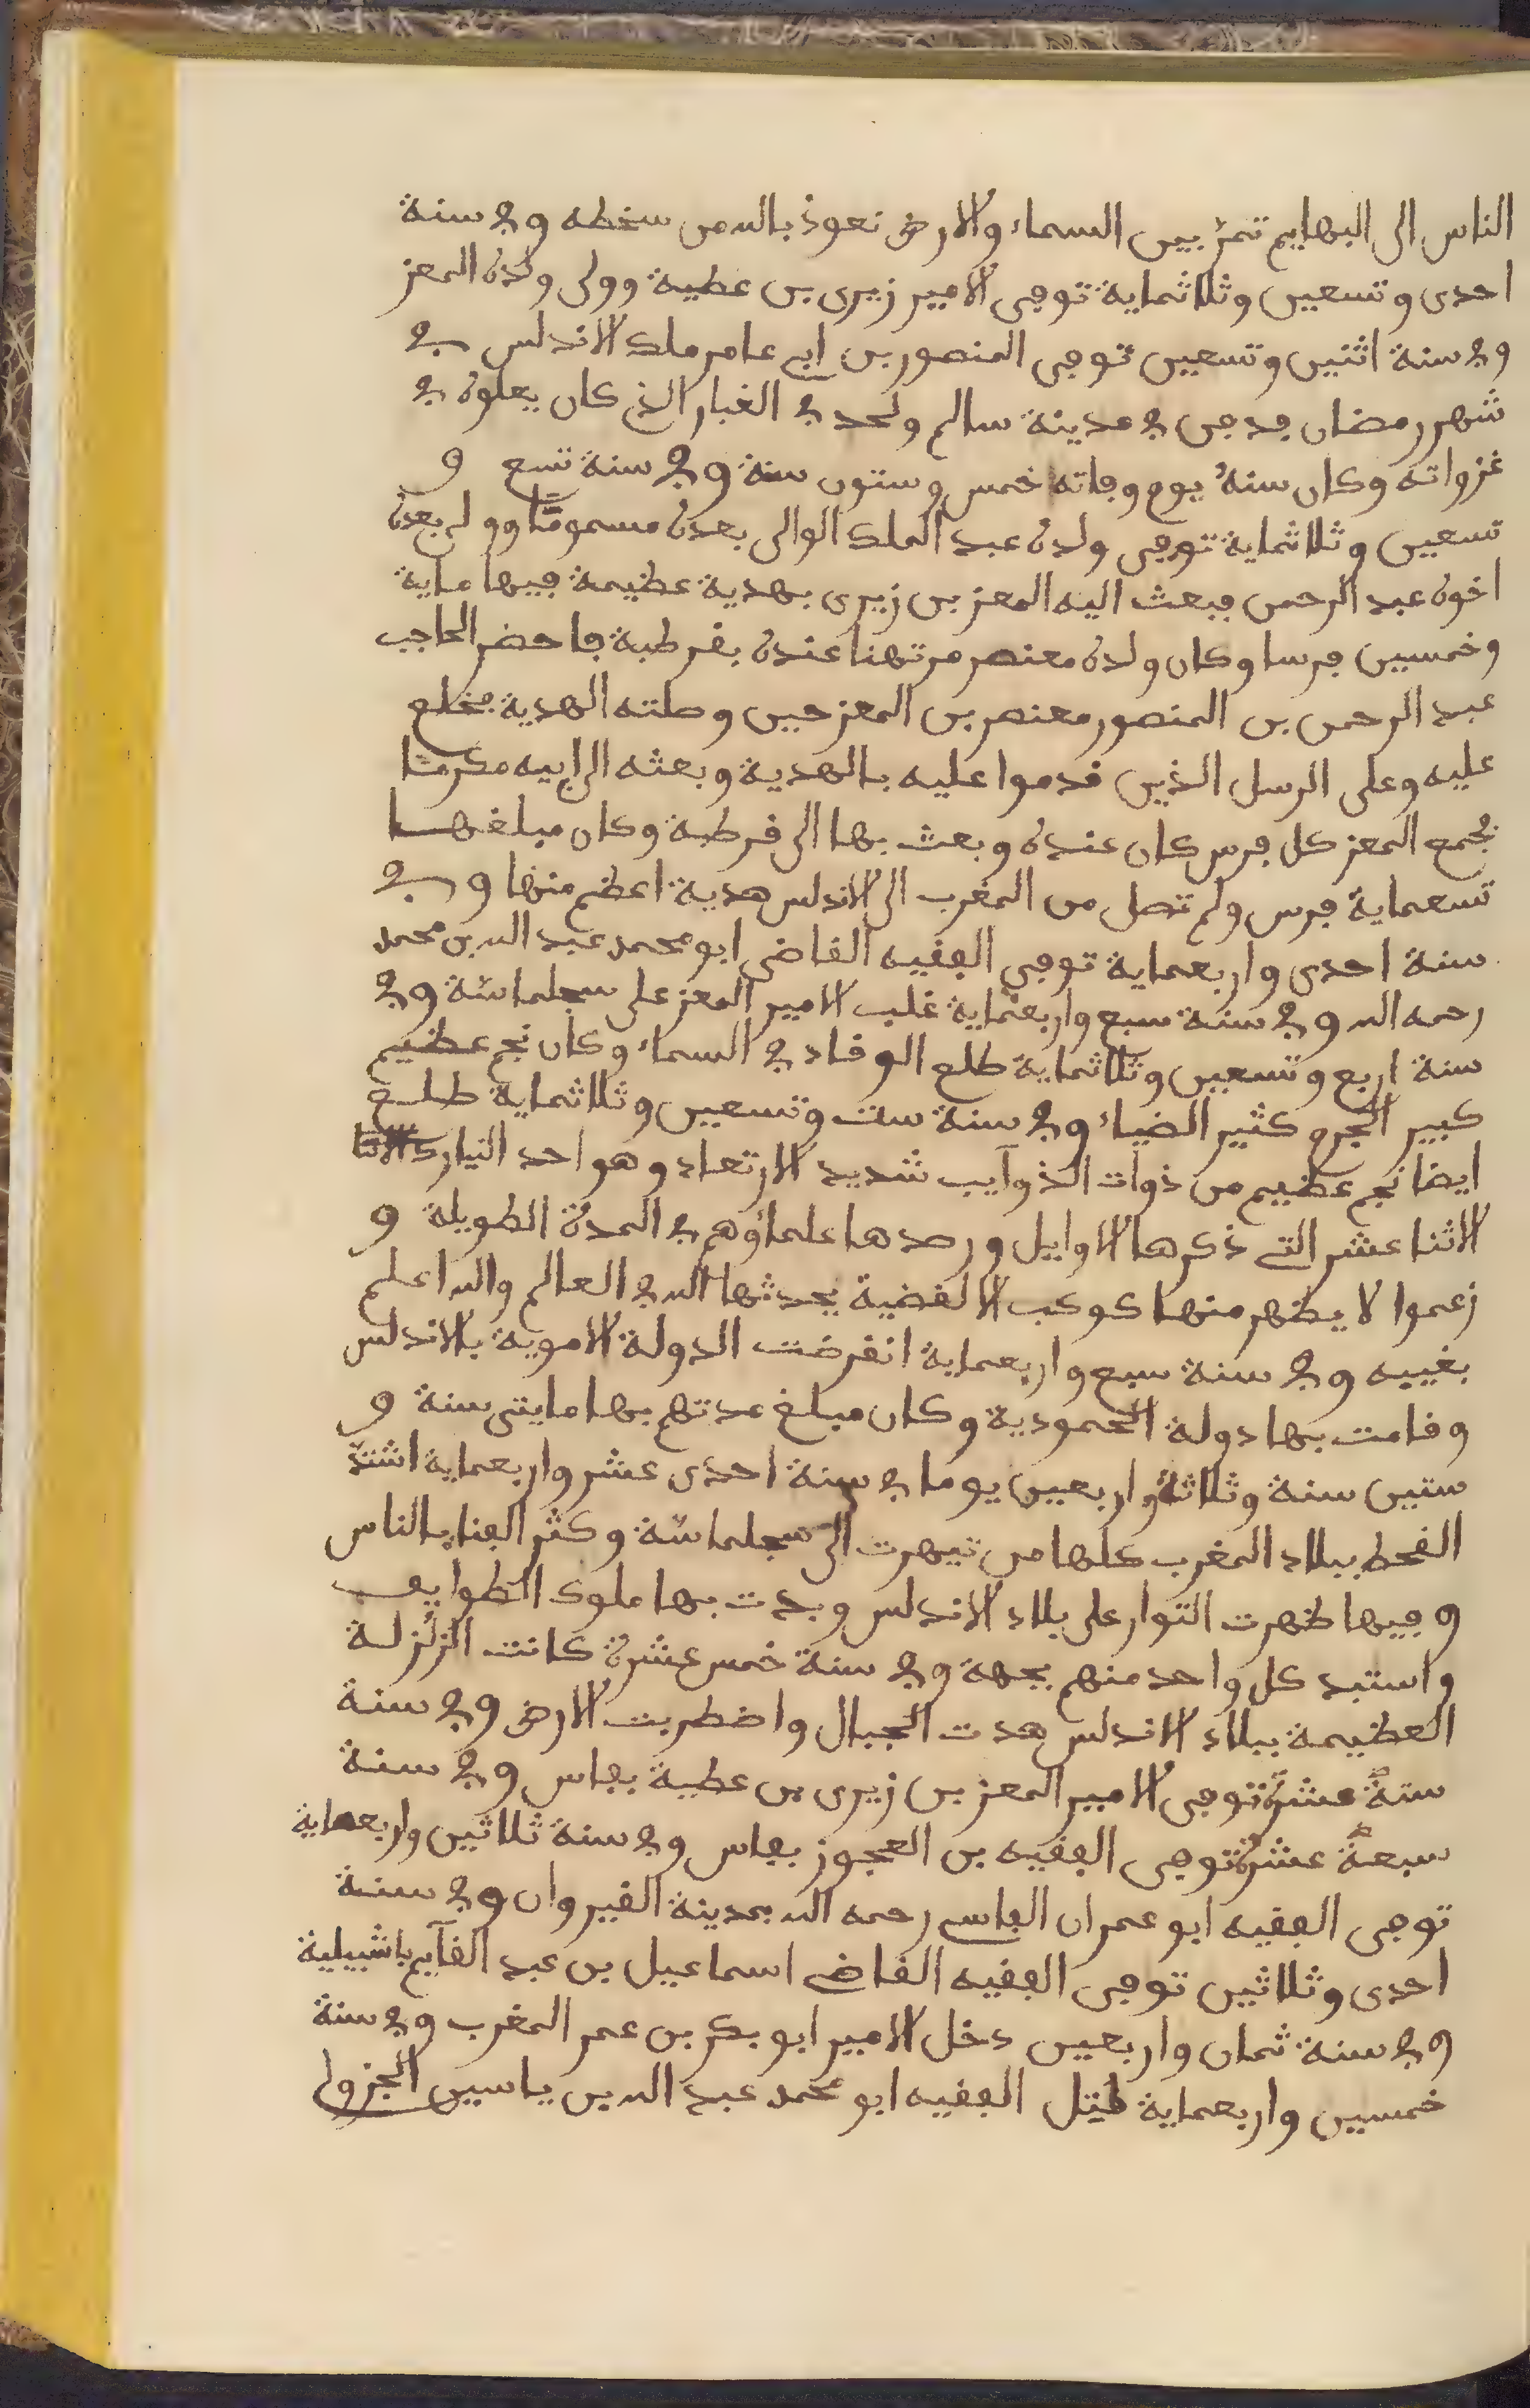 الناس الى البهايم تمر بين السماء والارض نعوذ بالله من سخطه وفي سنة
احدى وتسعين وثلاثماية توفي الامير زيري بن عطية وولي ولده المعز
وفي سنة اثنين وتسعين توفي المنصور بن ابي عامر ملك الاندلس في
شهر رمضان فدفن في مدينة سالم ولحد في الغبار الذي كان يعلوه في
غزواته وكان سنه يوم وفاته خمس وستون سنة وفي سنة تسع و
تسعين وثلاثماية توفي ولده عبد الملك الوالي بعده مسموما وولي بعده
اخوه عبد الرحمن فبعث اليه المعز بن زيري بهدية عظيمة فيها ماية
وخمسين فرسا وكان ولده معنصر مرتهنا عنده بقرطبة فاحضر الحاجب
عبد الرحمن بن المنصور معنصر بن المعز حين وصلته الهدية فخلع
عليه وعلى الرسل الذين قدموا عليه بالهدية وبعثه الى ابيه مكرما
فجمع المعز كل فرس كان عنده وبعث بها الى قرطبة وكان مبلغها
تسعماية فرس ولم تصل من المغرب الى الاندلس هدية اعظم منها وفي
سنة احدى واربعماية توفي الفقيه القاضي ابو محمد عبد الله بن محمد
رحمه الله وفي سنة سبع واربعماية غلب الامير المعز على سجلماسة وفي
سنة اربع وتسعين وثلاثماية طلع الوقاد في السماء وكان نجم عظيم
كبير الجرم كثير الضياء وفي سنة ست وتسعين وثلاثماية طلع
ايضا نجم عظيم من ذوات الذوآيب شديد الارتعاد وهو احد النيازك
الاثنا عشر التي ذكرها الاوايل ورصدها علماؤهم في المدة الطويلة و
زعموا لا يظهر منها كوكب الا لقضية يحدثها الله في العالم والله اعلم
بغيبه وفي سنة سبع واربعماية انقرضت الدولة الاموية بالاندلس
وقامت بها دولة الحمودية وكان مبلغ مدتهم بها مايتي سنة و
ستين سنة وثلاثة واربعين يوما في سنة احدى عشر واربعماية اشتد
القحط ببلاد المغرب كلها من تيهرت الى سجلماسة وكثر الفنا بالناس
وفيها ظهرت الثوار على بلاد الاندلس وبدت بها ملوك الطوايف
واستبد كل واحد منهم بجهة وفي سنة خمس عشرة كانت الزلزلة
العظيمة ببلاد الاندلس هدت الجبال واضطربت الارض وفي سنة
ستة عشرة توفي الامير المعز بن زيري بن عطية بفاس وفي سنة
سبعة عشرة توفي الفقيه بن العجوز بفاس وفي سنة ثلاثين واربعماية
توفي الفقيه ابو عمران الفاسي رحمه الله بمدينة القيروان وفي سنة
احدى وثلاثين توفي الفقيه القاضي اسماعيل بن عبد القآيم باشبيلية
وفي سنة ثمان واربعين دخل الامير ابو بكر بن عمر المغرب وفي سنة
خمسين واربعماية قتل الفقيه ابو محمد عبد الله بن ياسين الجزولي